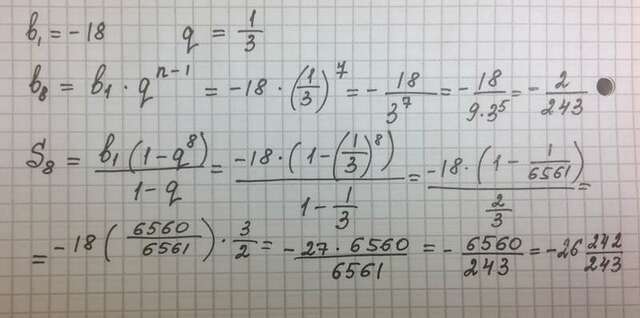 b₁ = -18 q = 1/3
b₈ = b₁ · qⁿ⁻¹ = -18 · (1/3)⁷ = - 18/3⁷ = - 18/(9·3⁵) = - 2/243
S₈ = b₁(1-q⁸)/(1-q) = -18·(1-(1/3)⁸)/(1-1/3) = -18·(1-1/6561)/(2/3) =
= -18(6560/6561)·3/2 = - 27·6560/6561 = - 6560/243 = -26 242/243